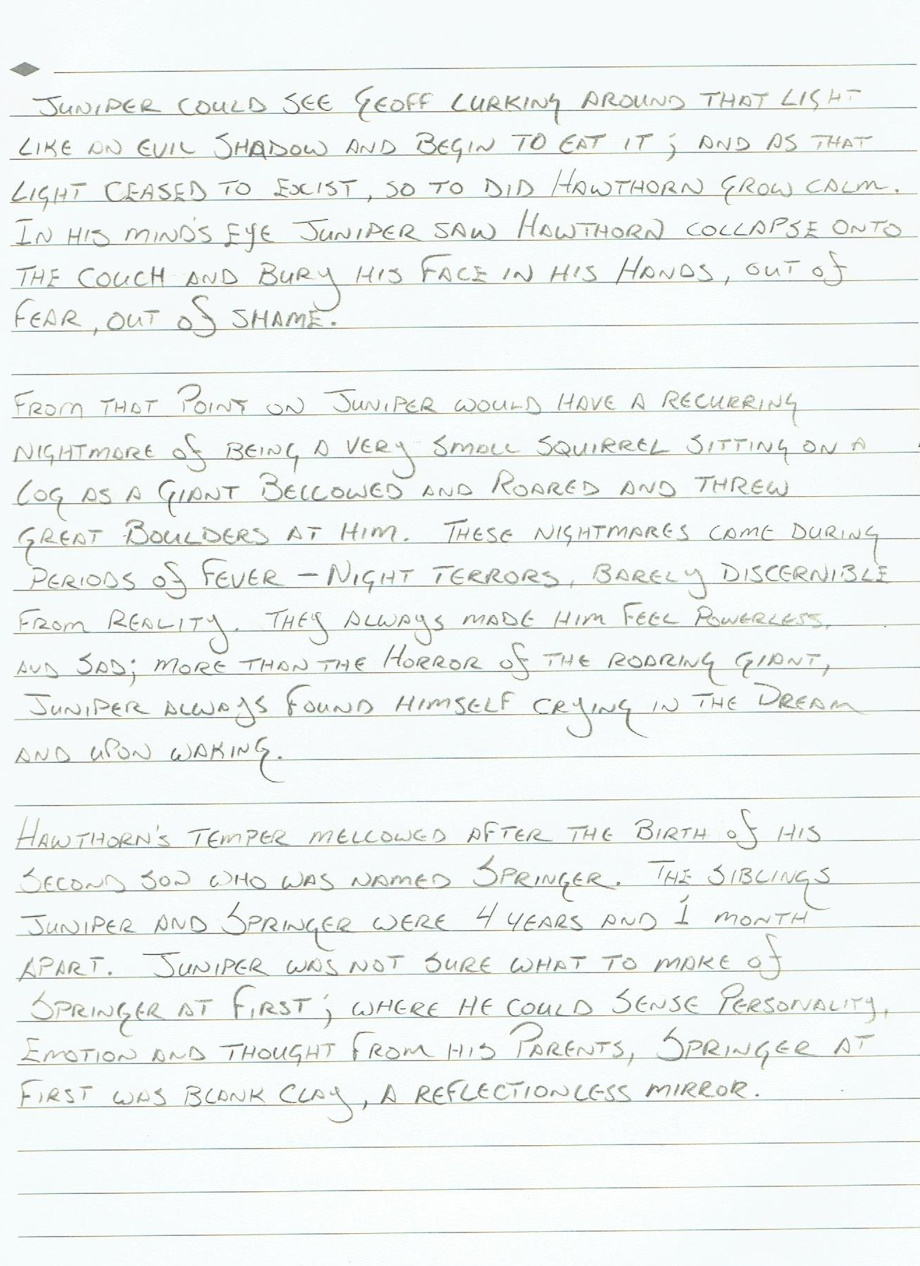 JUNIPER COULD SEE GEOFF LURKING AROUND THAT LIGHT
LIKE AN EVIL SHADOW AND BEGIN TO EAT IT; AND AS THAT
LIGHT CEASED TO EXIST, SO TO DID HAWTHORN GROW CALM.
IN HIS MINDS EYE JUNIPER SAW HAWTHORN COLLAPSE ONTO
THE COUCH AND BURY HIS FACE IN HIS HANDS, OUT OF
FEAR, OUT OF SHAME.
FROM THAT POINT ON JUNIPER WOULD HAVE A RECURRING
NIGHTMARE OF BEING A VERY SMALL SQUIRREL SITTING ON A
LOG AS A GIANT BELLOWED AND ROARED AND THREW
GREAT BOULDERS AT HIM. THESE NIGHTMARES CAME DURING
PERIODS OF FEVER – NIGHT TERRORS, BARELY DISCERNIBLE
FROM REALITY. THEY ALWAYS MADE HIM FEEL POWERLESS,
AND SAD; MORE THAN THE HORROR OF THE ROARING GIANT,
JUNIPER ALWAYS FOUND HIMSELF CRYING IN THE DREAM
AND UPON WAKING.
HAWTHORN'S TEMPER MELLOWED AFTER THE BIRTH OF HIS
SECOND SON WHO WAS NAMED SPRINGER. THE SIBLINGS
JUNIPER AND SPRINGER WERE 4 YEARS AND 1 MONTH
APART. JUNIPER WAS NOT SURE WHAT TO MAKE OF
SPRINGER AT FIRST; WHERE HE COULD SENSE PERSONALITY,
EMOTION AND THOUGHT FROM HIS PARENTS, SPRINGER AT
FIRST WAS BLANK CLAY, A REFLECTIONLESS MIRROR.